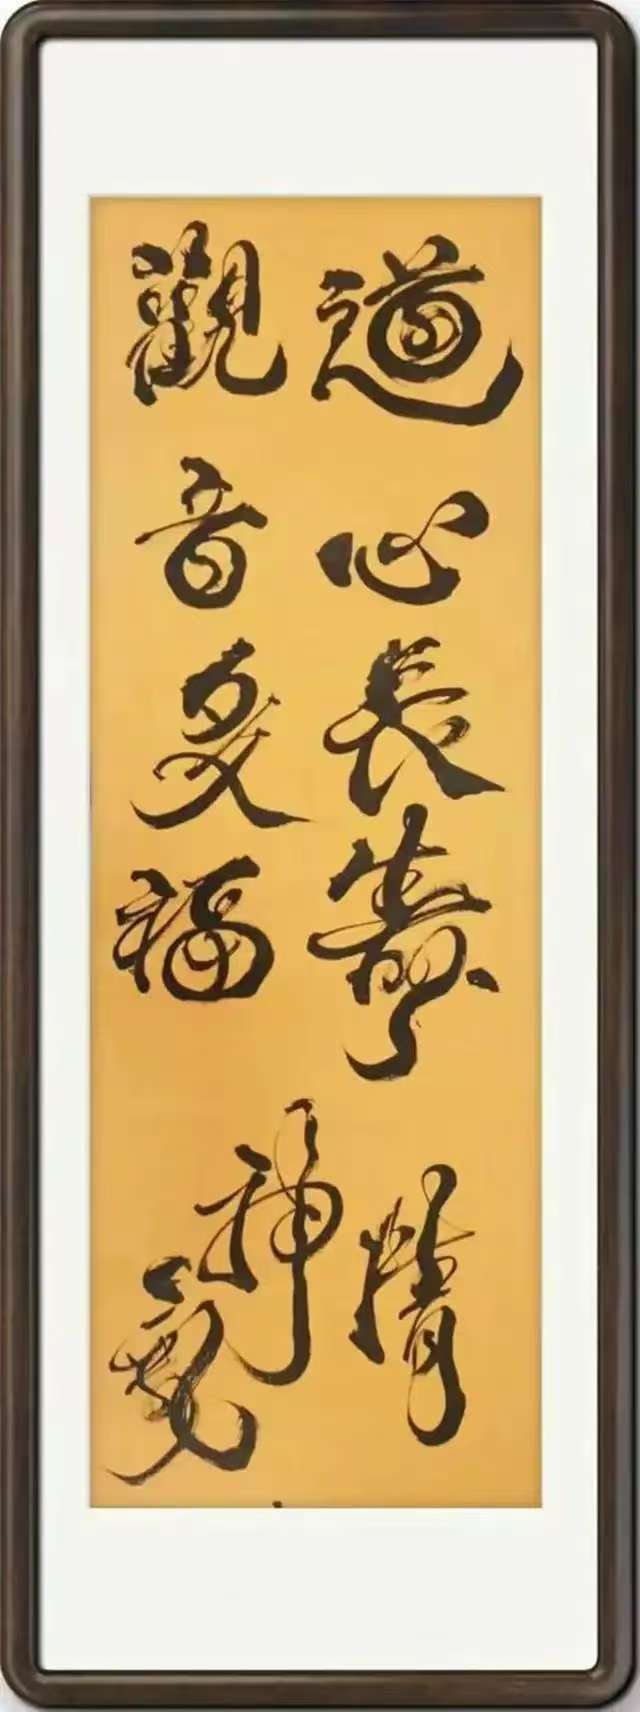 道心長壽
觀音多福
精神